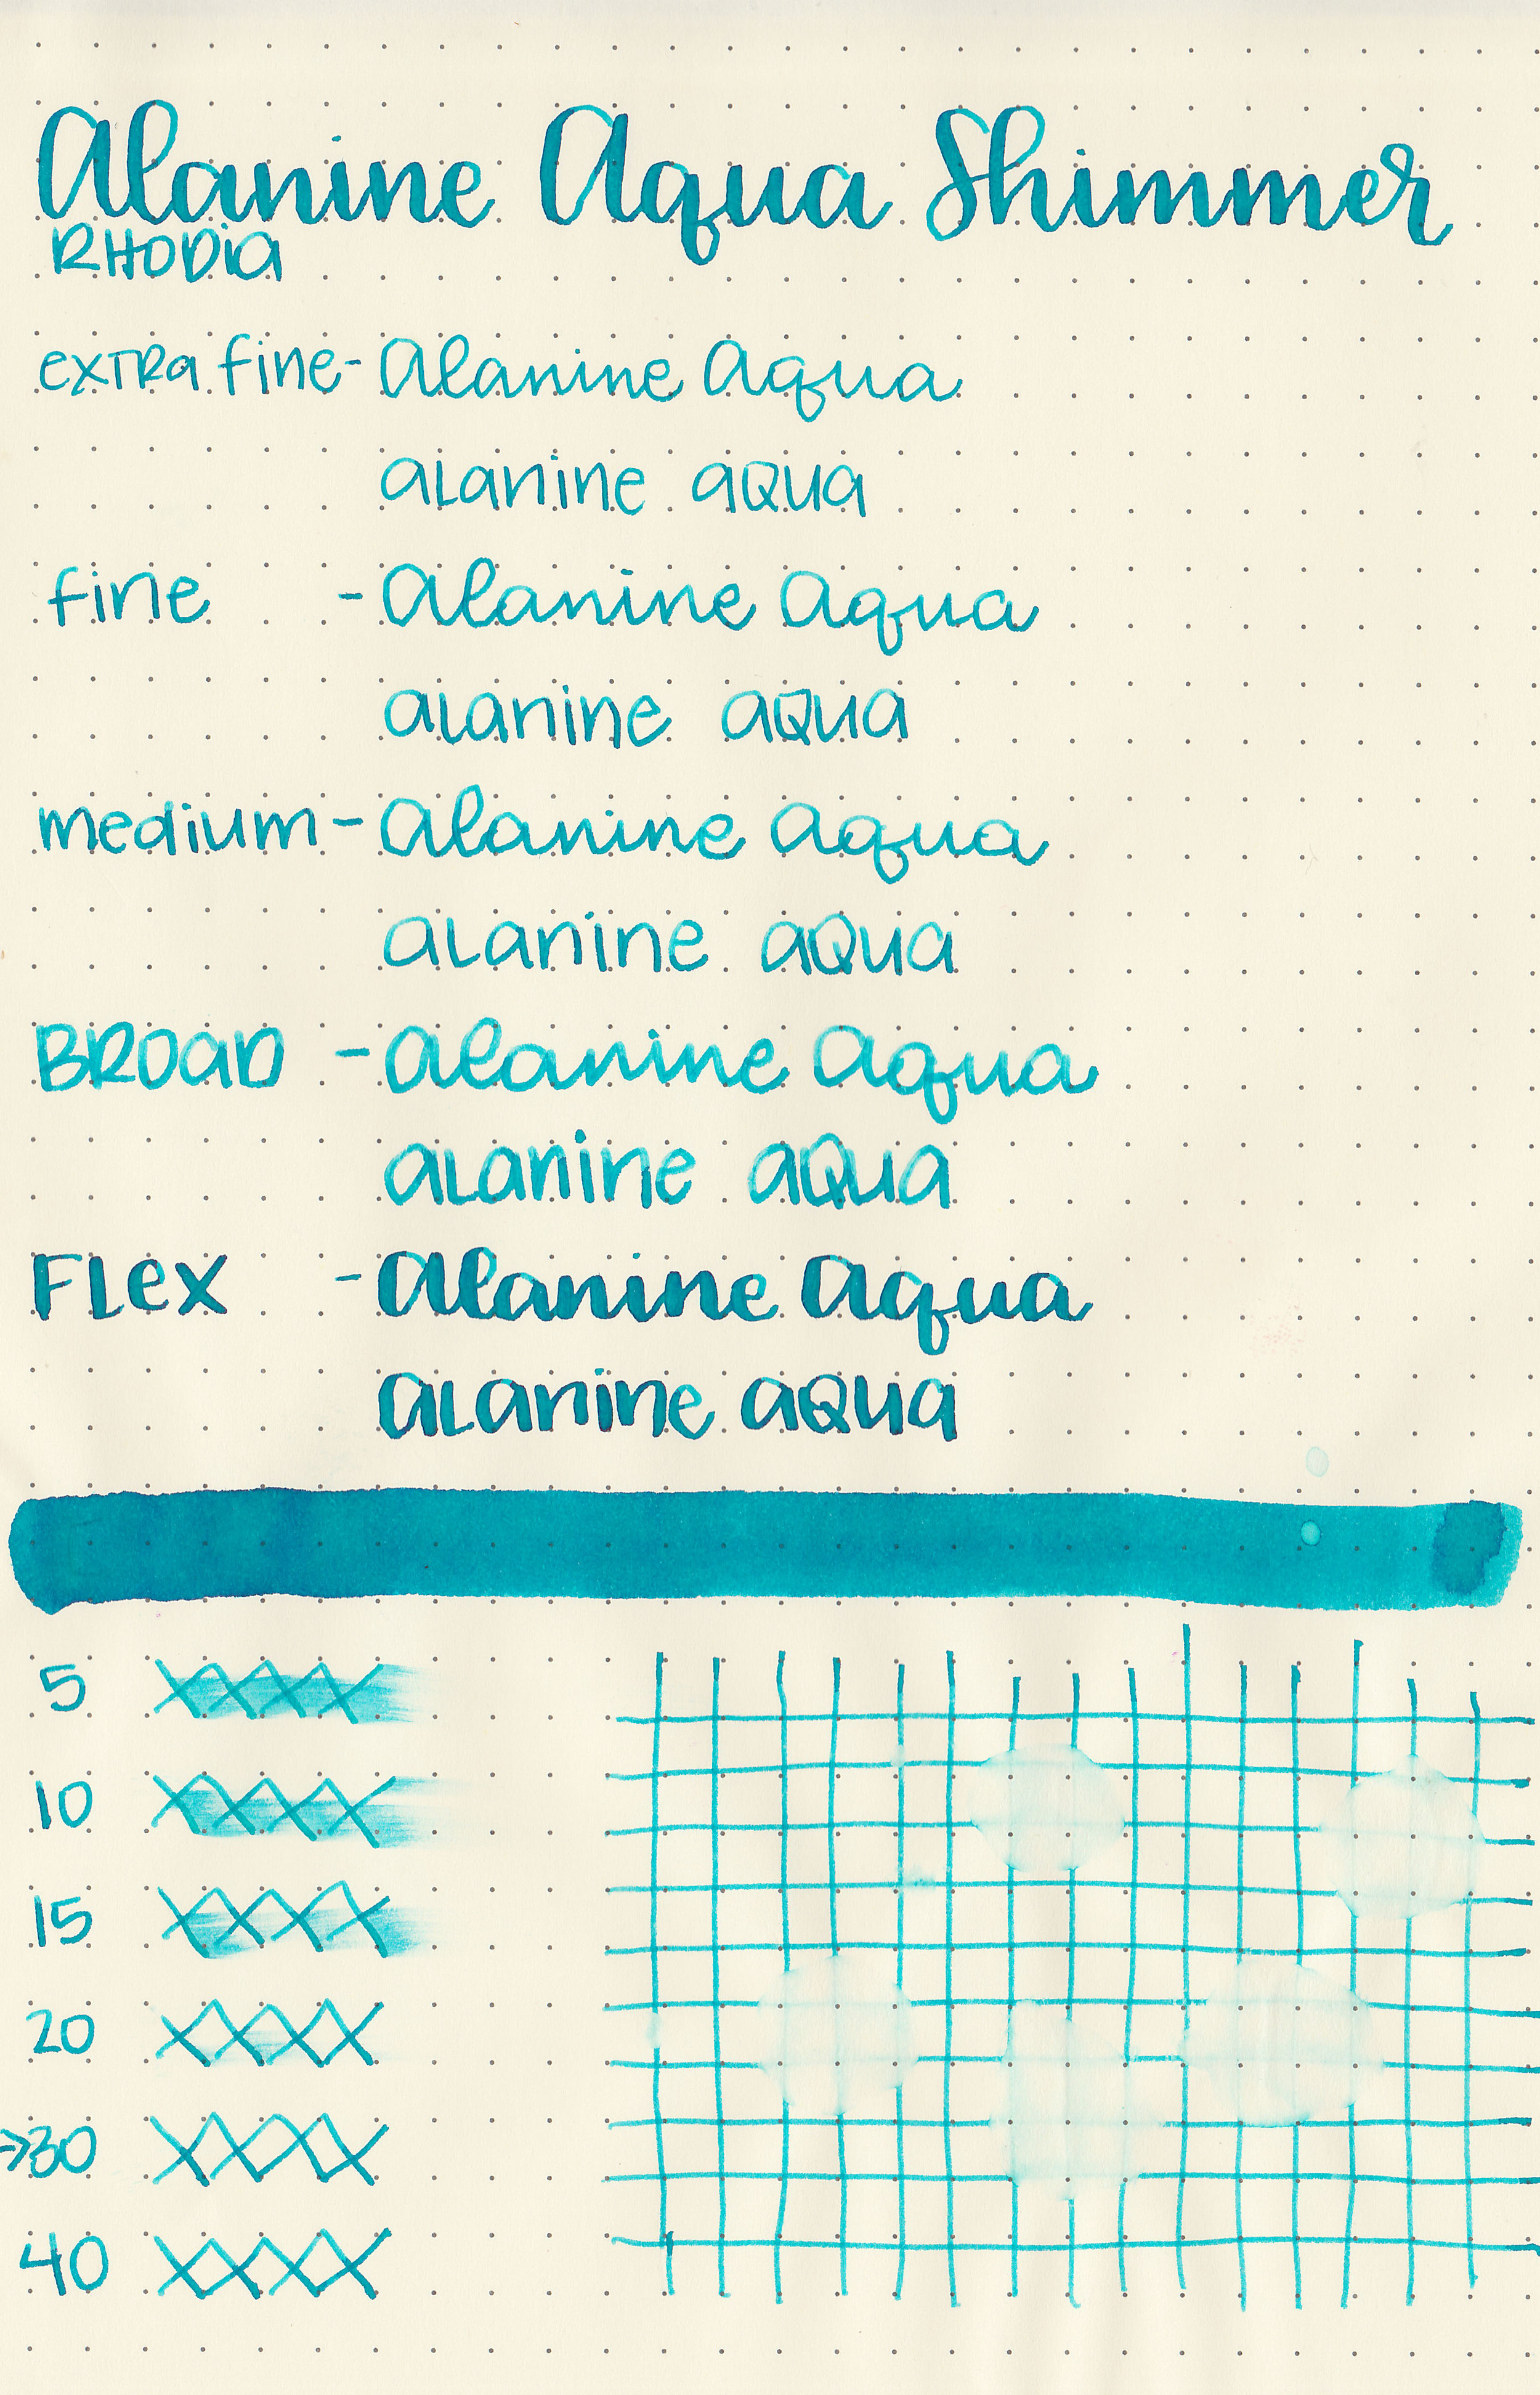 Alanine Aqua Shimmer
RHODIA
extra fine - Alanine Aqua
alanine aqua
fine - Alanine Aqua
alanine aqua
medium - Alanine Aqua
alanine aqua
BROAD - Alanine Aqua
alanine aqua
FLex - Alanine Aqua
alanine aqua
5 XXXX
10 XXXX
15 XXXX
20 XXXX
→30 XXXX
40 XXXX